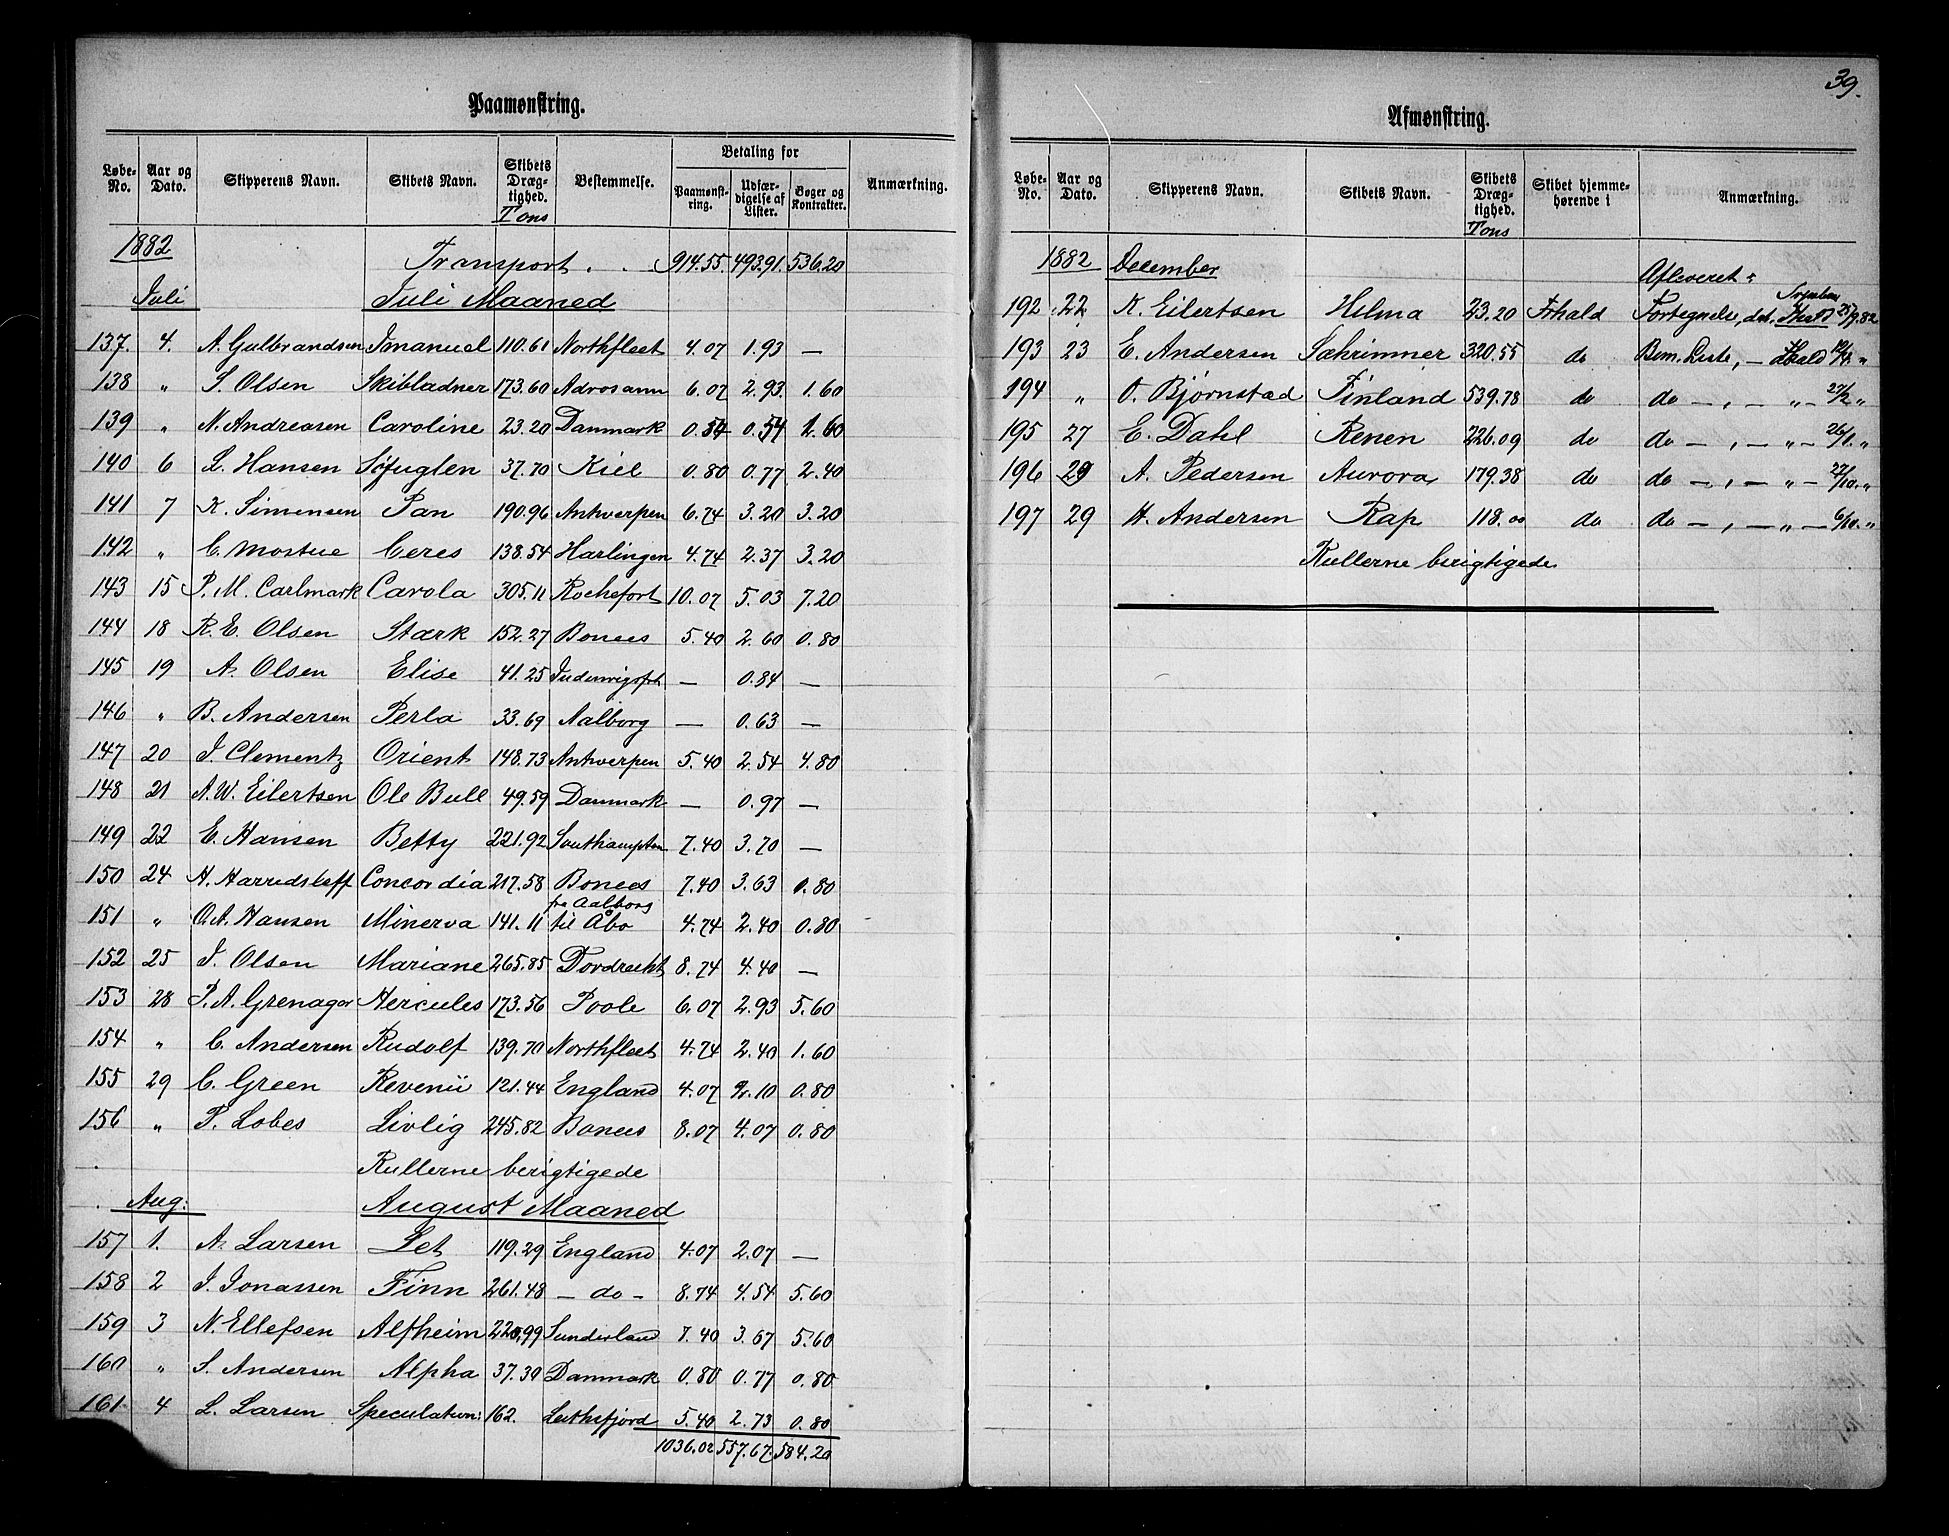 39.
Paamønstring.
Løbe-No. Aar og Dato. Skipperens Navn. Skibets Navn. Skibets Dræg-tighed. Tons Bestemmelse. Betaling for Paamønst-ring. Udfær-digelse af Lister. Bøger og Kontrakter. Anmærkning.
1882 Transport . . 914.55. 493.91. 536.20
Juli Juli Maaned
137. 4. A. Gulbrandsen Imanuel 110.61 Northfleet 4.07 1.93 —
138 " S. Olsen Skibladner 173.60 Adrosann 6.07 2.93 1.60
139 " N. Andreasen Caroline 23.20 Danmark 0.54 0.54 1.60
140 6 L. Hansen Söfuglen 37.70 Kiel 0.80 0.77 2.40
141 7 K. Simensen Pan 190.96 Antverpen 6.74 3.20 3.20
142 " C. Mostue Ceres 138.54 Harlingen 4.74 2.37 3.20
143 15 P. M. Carlmark Carola 305.11 Rochefort 10.07 5.03 7.20
144 18 R. E. Olsen Stærk 152.27 Bonees 5.40 2.60 0.80
145 19 A. Olsen Elise 41.25 — 0.84 —
146 " B. Andersen Perla 33.69 Aalborg — 0.63 —
147 20 J. Clementz Orient 148.73 Antverpen 5.40 2.54 4.80
148 21 A. W. Eilertsen Ole Bull 49.59 Danmark — 0.97 —
149 22 E. Hansen Betty 221.92 Southampton 7.40 3.70 —
150 24 H. Harridsleff Concordia 217.58 Bonees 7.40 3.63 0.80
151 " O. A. Hansen Minerva 141.11 fra Aalborg til Åbo 4.74 2.40 0.80
152 25 J. Olsen Mariane 265.85 Dordrecht 8.74 4.40 —
153 28 P. A. Grenager Hercules 173.56 Poole 6.07 2.93 5.60
154 " C. Andersen Rudolf 139.70 Northfleet 4.74 2.40 1.60
155 29 C. Green Revenü 121.44 England 4.07 2.10 0.80
156 " P. Lobes Livlig 245.82 Bonees 8.07 4.07 0.80
Rullerne berigtigede
Aug: August Maaned
157 1. A. Larsen Let 119.29 England 4.07 2.07 —
158 2 J. Jonassen Finn 261.48 — do — 8.74 4.54 5.60
159 3 N. Ellefsen Alfheim 220,99 Sunderland 7.40 3.67 5.60
160 " S. Andersen Alpha 37.30 Danmark 0.80 0.77 0.80
161 4 L. Larsen Speculation: 162. Leithsfjord 5.40 2.73 0.80
1036.02 557.67. 584.20
Afmønstring.
Løbe-No. Aar og Dato. Skipperens Navn. Skibets Navn. Skibets Dræg-tighed. Tons Skibet hjemme-hørende i Anmærkning.
1882 December Afleveret:
192 22 K. Eilertsen Helma 23.20 Frhald Fortegnelse, dat. 25/9.82
193 23 E. Andersen Sæhrimner 320.55 do Bem. Liste, — Fhald "
194 " O. Bjørnstad Finland 539.78 do do — , — " — 27/2 "
195 27 E. Dahl Renen 226.09 do do — , — " — 26/1. "
196 29 A. Pedersen Aurora 179.38 do do — , — " — 27/10. "
197 29 H. Andersen Rap 118.00 do do — , — " — 6/10. "
Rullerne berigtigede